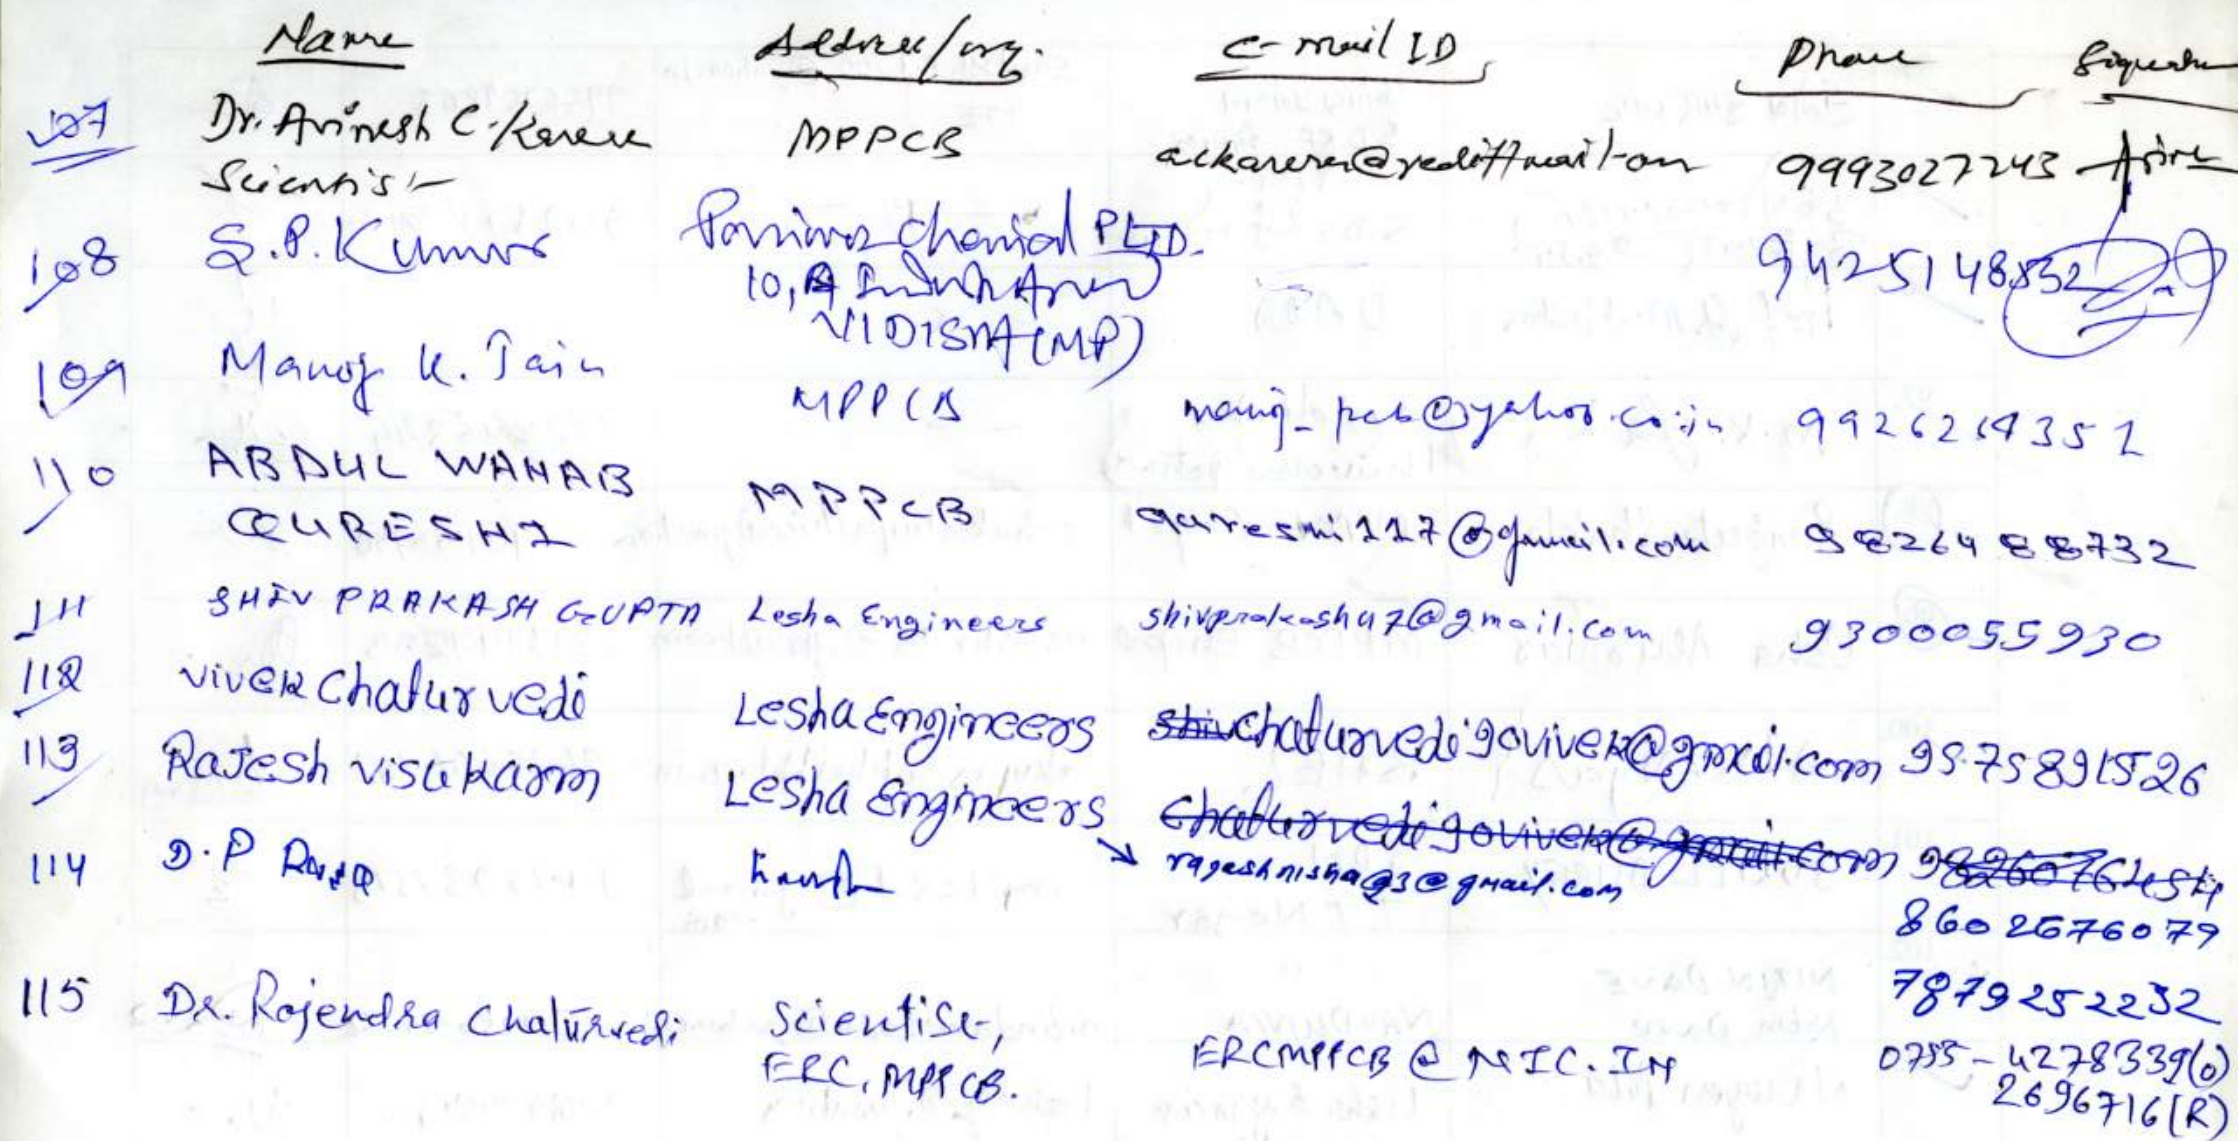 Name Address/org. E-mail ID Phone Signature
107 Dr. Avinesh C. Karera MPPCB ackarera@rediffmail.com 9993027243
Scientist
108 S.P. Kumar P LTD. 9425148832
10, A
VIDISHA (MP)
109 Manoj K. Jain MPPCB manoj_pcb@yahoo.co.in 9926264351
110 ABDUL WAHAB MPPCB
QURESHI qureshi117@gmail.com 9826488732
111 SHIV PRAKASH GUPTA Lesha Engineers shivprakash47@gmail.com 9300055930
112 Vivek Chaturvedi Lesha Engineers chaturvedigovivek@gmail.com 9575891526
113 Rajesh visukarm Lesha Engineers
114 D.P rajeshnisha93@gmail.com
8602676079
7879252232
115 Dr. Rajendra Chaturvedi Scientist, ERCMPPCB@NIC.IN 0755-4278339(O)
ERC, MPPCB. 2696716(R)